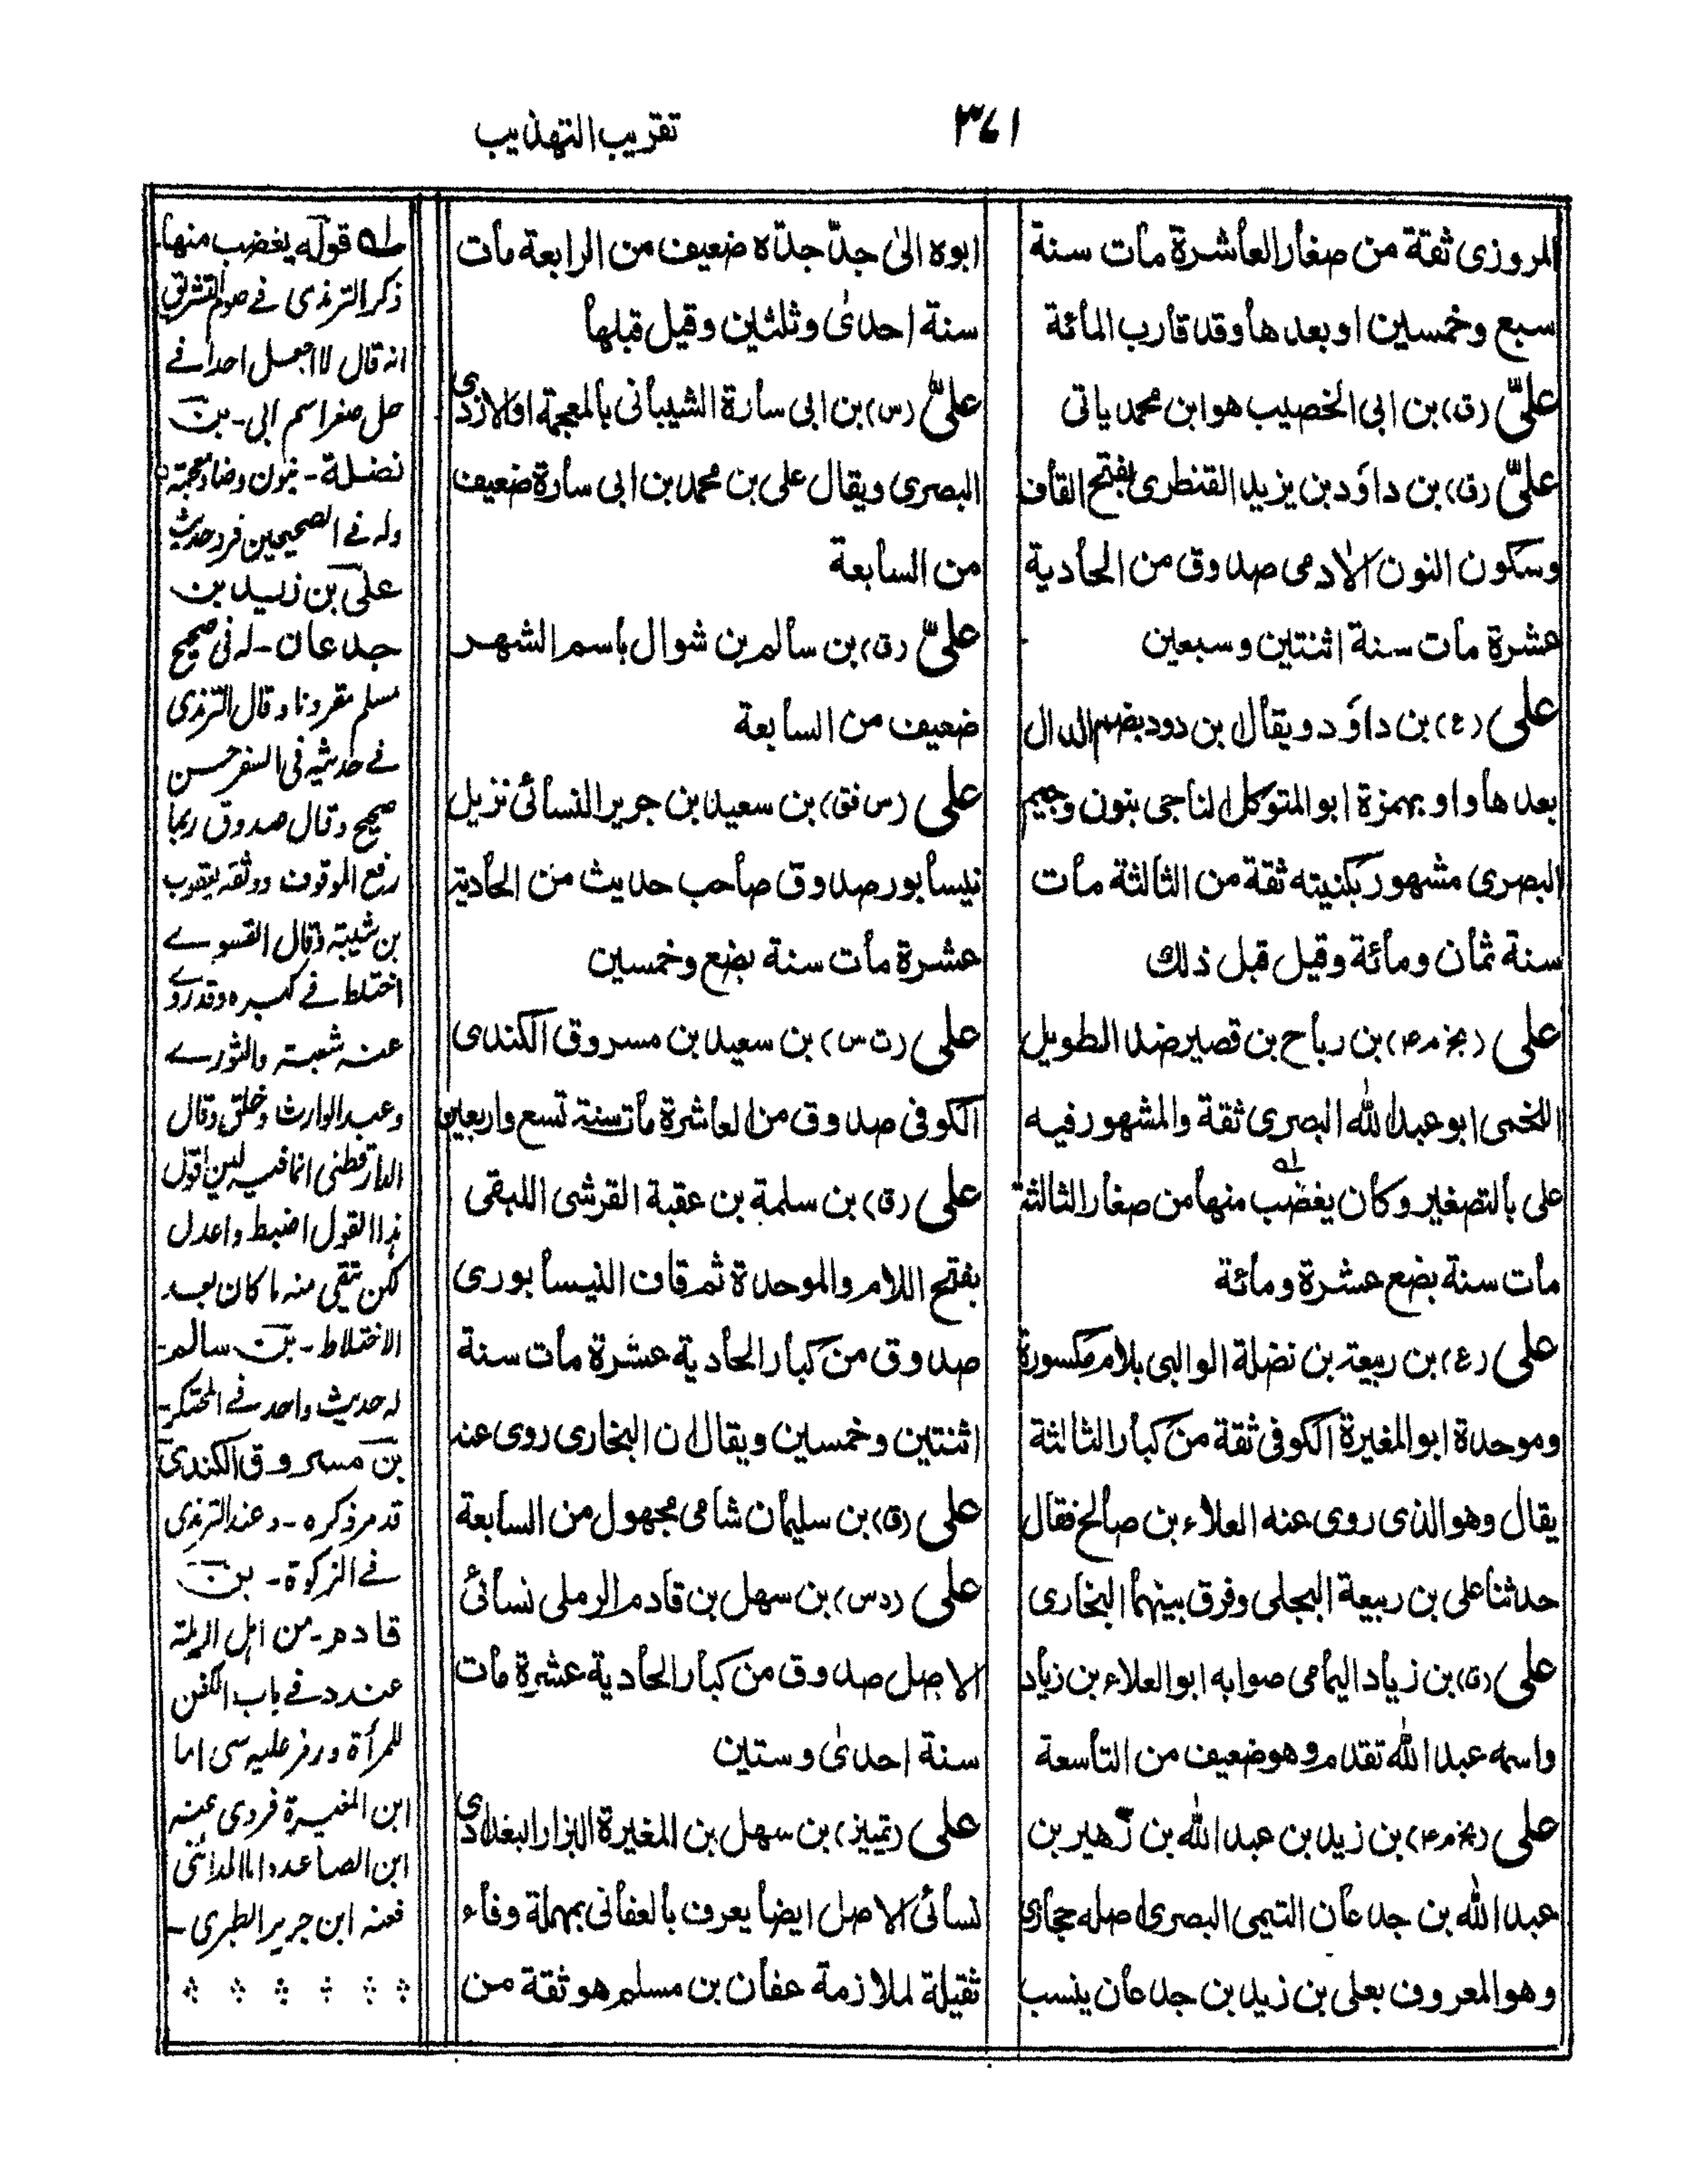 ٣٦١
تقريب التهذيب
المروزى ثقة من صغار العاشرة مات سنة
سبع وخمسين او بعدها وقد قارب المائة
علىّ (ق) بن ابى الخصيب هو ابن محمد ياتى
علىّ (ق) بن داؤد بن يزيد القنطرى بفتح القاف
وسكون النون الادمى صدوق من الحادية
عشرة مات سنة اثنتين وسبعين
على (ع) بن داؤد ويقال بن دود بضم الدال
بعدها واو بهمزة ابو المتوكل الناجى بنون وجيم
البصرى مشهور بكنيته ثقة من الثالثة مات
سنة ثمان ومائة وقيل قبل ذلك
على (بخ م ٤) بن رباح بن قصير ضد الطويل
اللخمى ابو عبد الله البصرى ثقة والمشهور فيه
على بالتصغير وكان يغضب منها من صغار الثالثة
مات سنة بضع عشرة ومائة
على (ع) بن ربيعة بن نضلة الوالبى بلام مكسورة
وموحدة ابو المغيرة الكوفى ثقة من كبار الثالثة
يقال وهو الذى روى عنه العلاء بن صالح فقال
حدثنا على بن ربيعة البجلى وفرق بينهما البخارى
على (ق) بن زياد اليمامى صوابه ابو العلاء بن زياد
واسمه عبد الله تقدم وهو ضعيف من التاسعة
على (بخ م ٤) بن زيد بن عبد الله بن زهير بن
عبد الله بن جدعان التيمى البصرى اصله حجازى
وهو المعروف بعلى بن زيد بن جدعان ينسب
ابوه الىٰ جدّ جدّه ضعيف من الرابعة مات
سنة احدىٰ وثلثين وقيل قبلها
علىّ (س) بن ابى سارة الشيبانى بالمعجمة او الازدى
البصرى ويقال على بن محمد بن ابى سارة ضعيف
من السابعة
علىّ (ق) بن سالم بن شوال باسم الشهر
ضعيف من السابعة
على (س فق) بن سعيد بن جرير النسائى نزيل
نيسابور صدوق صاحب حديث من الحادية
عشرة مات سنة بضع وخمسين
على (ت س) بن سعيد بن مسروق الكندى
الكوفى صدوق من العاشرة مات سنة تسع واربعين
على (ق) بن سلمة بن عقبة القرشى اللبقى
بفتح اللام والموحدة ثم قاف النيسابورى
صدوق من كبار الحادية عشرة مات سنة
اثنتين وخمسين ويقال ان البخارى روى عنه
على (ق) بن سليمان شامى مجهول من السابعة
على (د س) بن سهل بن قادم الرملى نسائى
الاصل صدوق من كبار الحادية عشرة مات
سنة احدىٰ وستين
على (تمييز) بن سهل بن المغيرة البزار البغدادى
نسائى الاصل ايضا يعرف بالعفانى بمهملة وفاء
ثقيلة لملازمة عفان بن مسلم هو ثقة من
له قوله يغضب منها-
ذكر الترمذى فے صوم التشريق
انه قال لا اجعل احدا فے
حل صغر اسم ابى - بن
نضلة - بنون وضاد معجمة
وله فے الصحيحين فرد حديث
على بن زيد بن
جدعان - له فى صحيح
مسلم مقرونا وقال الترمذى
فے حديثه فى السفر حسن
صحيح وقال صدوق ربما
رفع الموقوف ووثقه يعقوب
بن شيبة وقال الفسوے
اختلط فے كبره وقد روے
عنه شعبة والثورے
وعبد الوارث وخلق وقال
الدارقطنى انما فيه لين اقول
هذا القول اضبط واعدل
لكن يتقى منه ما كان بعد
الاختلاط - بن سالم-
له حديث واحد فے المحتكر-
بن مسروق الكندى
قد مر ذكره - وعند الترمذى
فے الزكوة - بن
قادم - من اهل الرملة
عند د فے باب الكفن
للمرأة ورمز عليه سى اما
ابن المغيرة فروى عنه
ابن الصاعد واما المدائنى
فعنه ابن جرير الطبرى -